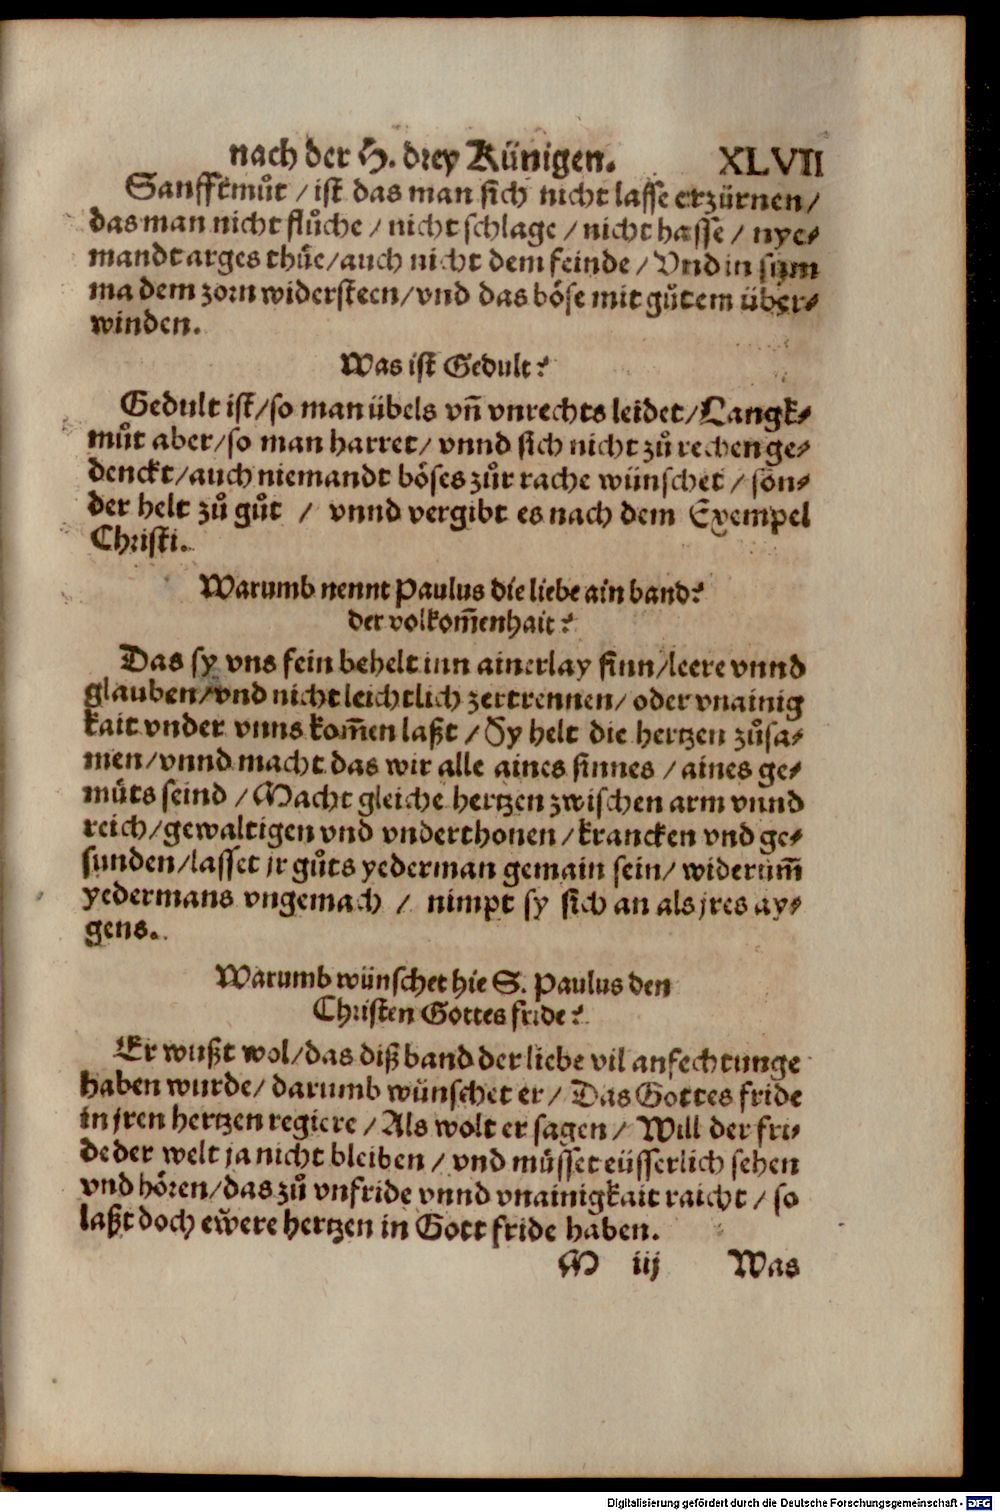 nach der H. drey Künigen. XLVII
Sanfftmuͦt / ist das man sich nicht lasse erzürnen /
das man nicht fluͦche / nicht schlage / nicht hasse / nye⸗
mandt arges thuͤe / auch nicht dem feinde / Vnd in sum
ma dem zorn widersteen / vnd das boͤse mit guͦtem über⸗
winden.
Was ist Gedult?
Gedult ist / so man übels vn̄ vnrechts leidet / Langk⸗
muͦt aber / so man harret / vnnd sich nicht zuͦ rechen ge⸗
denckt / auch niemandt boͤses zuͦr rache wünschet / son⸗
der helt zuͦ guͦt / vnnd vergibt es nach dem Exempel
Christi.
Warumb nennt Paulus die liebe ain band?
der volkom̄enhait?
Das sy vns fein behelt inn ainerlay sinn / leere vnnd
glauben / vnd nicht leichtlich zertrennen / oder vnainig
kait vnder vnns kom̄en laßt / Sy helt die hertzen zuͦsa⸗
men / vnnd macht das wir alle aines sinnes / aines ge⸗
muͤts seind / Macht gleiche hertzen zwischen arm vnnd
reich / gewaltigen vnd vnderthonen / krancken vnd ge⸗
sunden / lasset jr guͦts yederman gemain sein / widerum̄
yedermans vngemach / nimpt sy sich an als jres ay⸗
gens.
Warumb wünschet hie S. Paulus den
Christen Gottes fride?
Er wußt wol / das diß band der liebe vil anfechtunge
haben wurde / darumb wünschet er / Das Gottes fride
in jren hertzen regiere / Als wolt er sagen / Will der fri⸗
de der welt ja nicht bleiben / vnd muͤsset eüsserlich sehen
vnd hoͤren / das zuͦ vnfride vnnd vnainigkait raicht / so
laßt doch ewere hertzen in Gott fride haben.
M iij Was
Digitalisierung gefördert durch die Deutsche Forschungsgemeinschaft - DFG